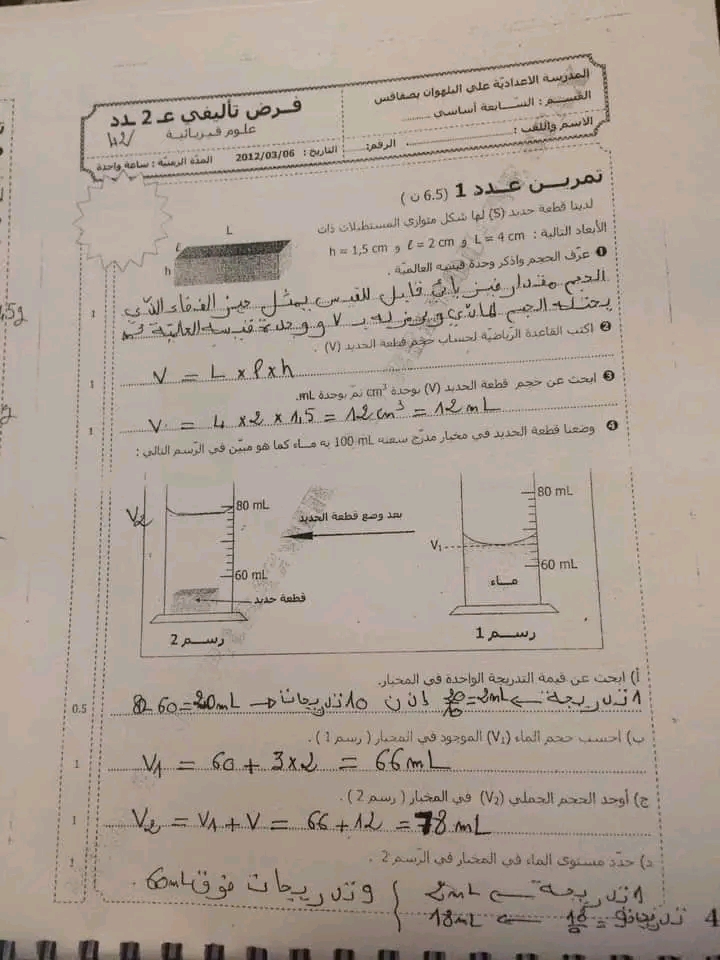 المدرسة الاعدادية علي البلهوان بصفاقس
القسم : السّابعة أساسي ........
الاسم واللقب : ........ الرقم: ........
فرض تأليفي عـ 2 ـدد
علوم فيزيائية
التاريخ : 2012/03/06
المدة الزمنيّة : ساعة واحدة
تمريـن عـدد 1 (6.5 ن)
لدينا قطعة حديد (S) لها شكل متوازي المستطيلات ذات
الأبعاد التالية : L = 4 cm و ℓ = 2 cm و h = 1,5 cm
L
ℓ
h
❶ عرّف الحجم واذكر وحدة قيسه العالميّة .
الحجم مقدار فيزيائي قابل للقيس يمثل حيز الفضاء الذي
يحتله الجسم المادي ويرمز له بـ V ووحدة قيسه العالمية
1
❷ اكتب القاعدة الرّياضيّة لحساب حجم قطعة الحديد (V) .
V = L x ℓ x h
1
❸ ابحث عن حجم قطعة الحديد (V) بوحدة cm³ ثمّ بوحدة mL.
V = 4 x 2 x 1,5 = 12 cm³ = 12 mL
1
❹ وضعنا قطعة الحديد في مخبار مدرّج سعته 100 mL به مـاء كما هو مبيّن في الرّسم التالي :
80 mL
V₁
60 mL
مـاء
رسـم 1
بعد وضع قطعة الحديد
V2
80 mL
60 mL
قطعة حديد
رسـم 2
أ) ابحث عن قيمة التدريجة الواحدة في المخبار.
60=20mL → 10 تدريجات إذن 20/10=2mL ← 1 تدريجة
0.5
ب) احسب حجم الماء (V₁) الموجود في المخبار ( رسم 1 ) .
V1 = 60 + 3x2 = 66 mL
1
ج) أوجد الحجم الجملي (V₂) في المخبار ( رسم 2 ) .
V2 = V1 + V = 66 + 12 = 78 mL
1
د) حدّد مستوى الماء في المخبار في الرّسم 2 .
1 تدريجة ← 2mL
18mL
9 تدريجات فوق 60mL .
1
4